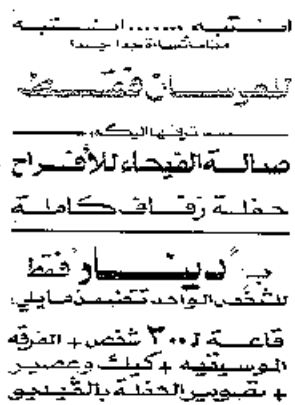 انتبه ...... انتبه
مفاجأة سارة جدا جدا
للعرسان فقط
تزفها اليكم
صالة الفيحاء للأفراح
حفلة زفاف كاملة
بـ دينار فقط
للشخص الواحد تتضمن ما يلي
قاعة لـ ٣٠٠ شخص + الفرقه
الموسيقيه + كيك وعصير
+ تصوير الحفلة بالفيديو